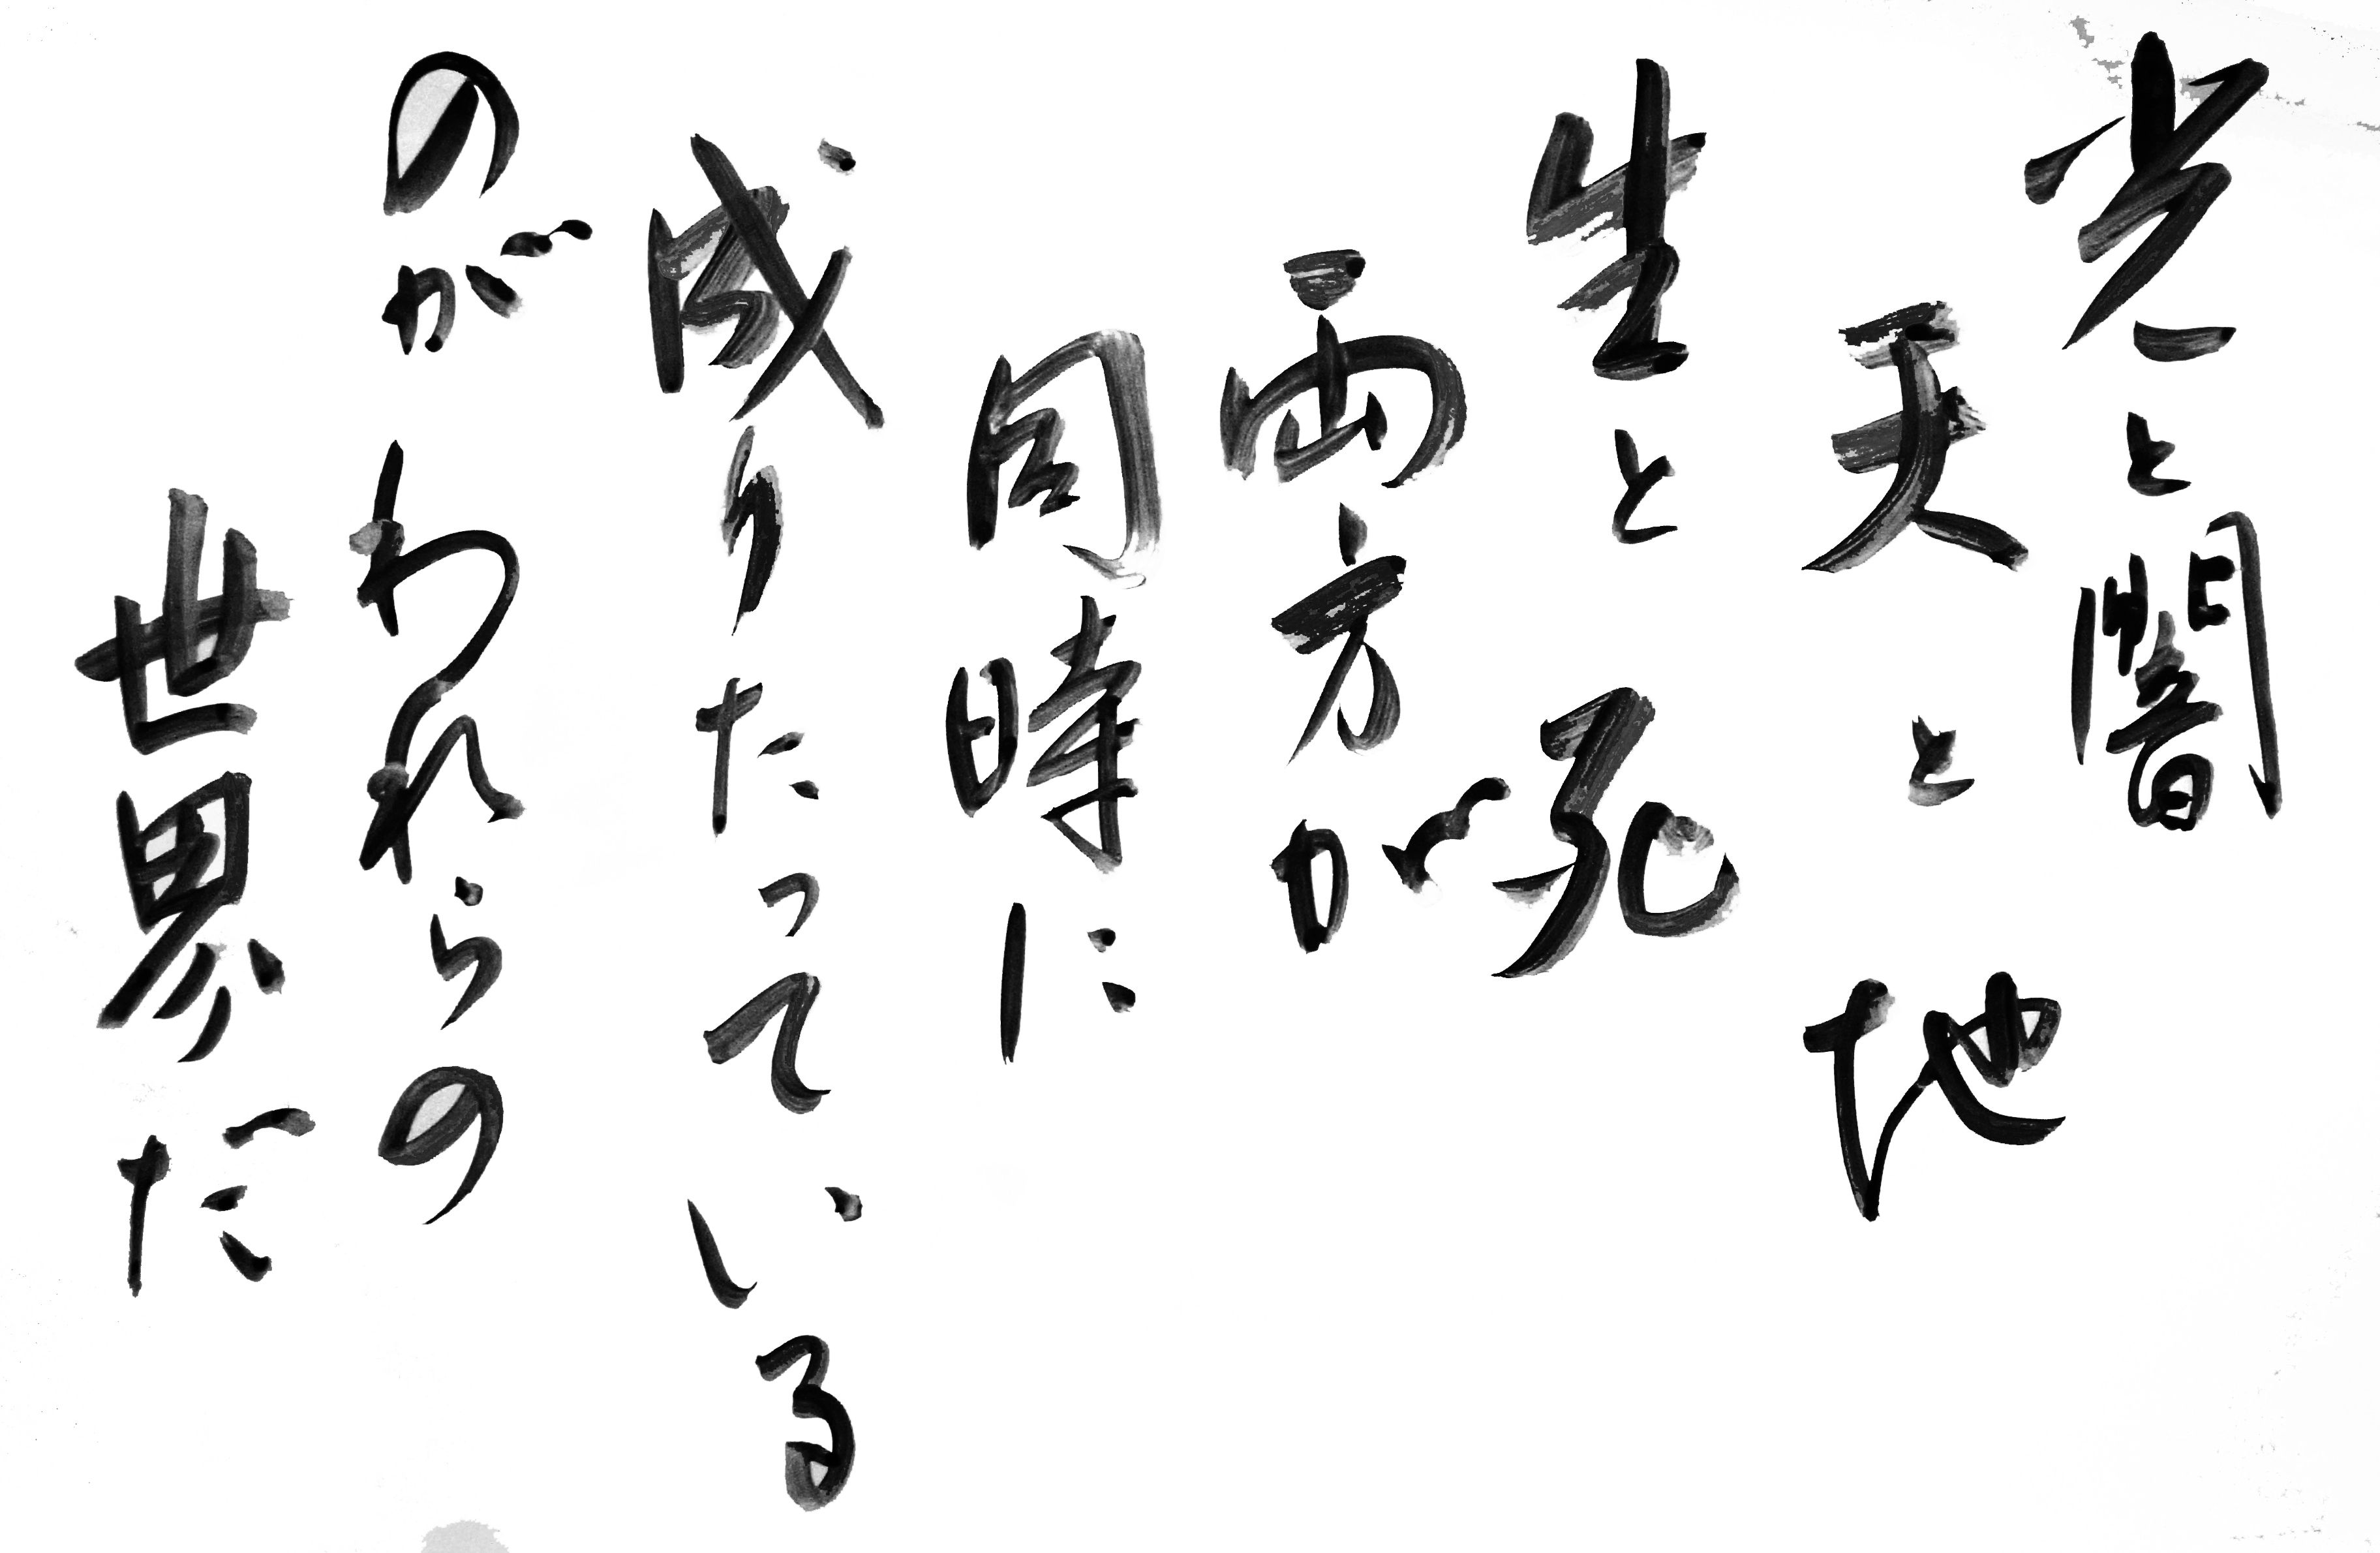 光と闇
天と地
生と死
両方が
同時に
成りたっている
のがわれらの
世界だ